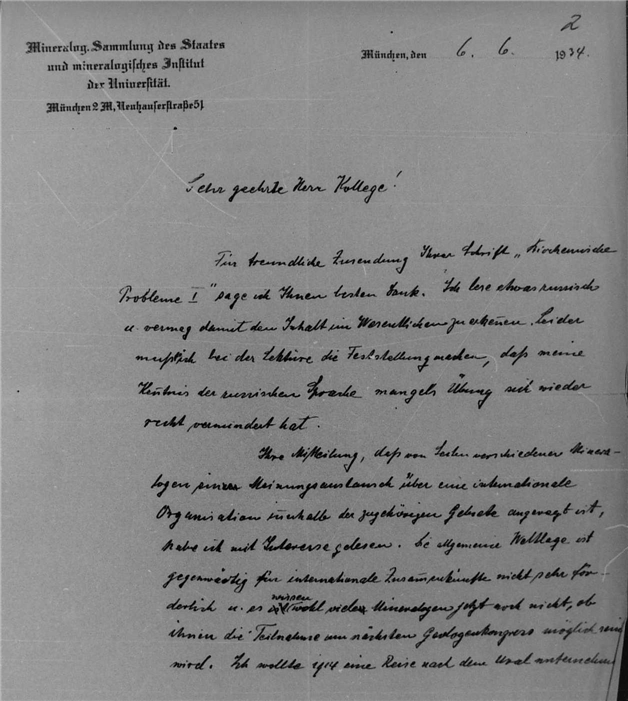 2
Mineralog. Sammlung des Staates
und mineralogisches Institut
der Universität.
München 2 M, Neuhauserstraße 51
München, den 6. 6. 1934.
Sehr geehrter Herr Kollege!
Für freundliche Zusendung Ihrer Schrift „
Probleme I" sage ich Ihnen besten Dank. Ich lese etwas russisch
u. vermag damit den Inhalt im Wesentlichen zu erkennen. Leider
mußt ich bei der Lektüre die Feststellung machen, daß meine
Kentnis der russischen Sprache mangels Übung sich wieder
recht vermindert hat.
Ihre Mitteilung, daß von Seiten verschiedener Minera-
logen Meinungsaustausch über eine internationale
Organisation innerhalb der zugehörigen Gebiete angeregt ist,
habe ich mit Interesse gelesen. Die Allgemeine Weltlage ist
gegenwärtig für internationale Zusammenkünfte nicht sehr för-
derlich u. es wissen wohl viele Mineralogen jetzt noch nicht, ob
ihnen die Teilnahme am nächsten Geologenkongress möglich sein
wird. Ich wollte 1914 eine Reise nach dem Ural unternehmen